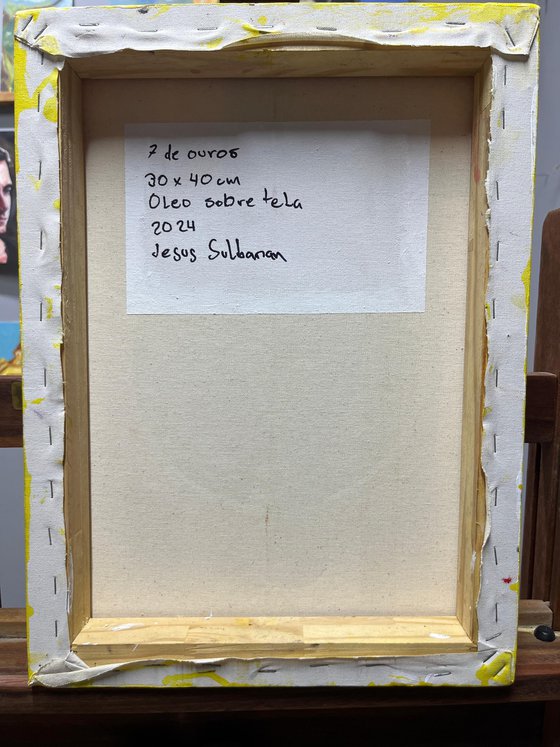 7 de ouros
30 x 40 cm
Oleo sobre tela
2024
Jesus Sulbaran